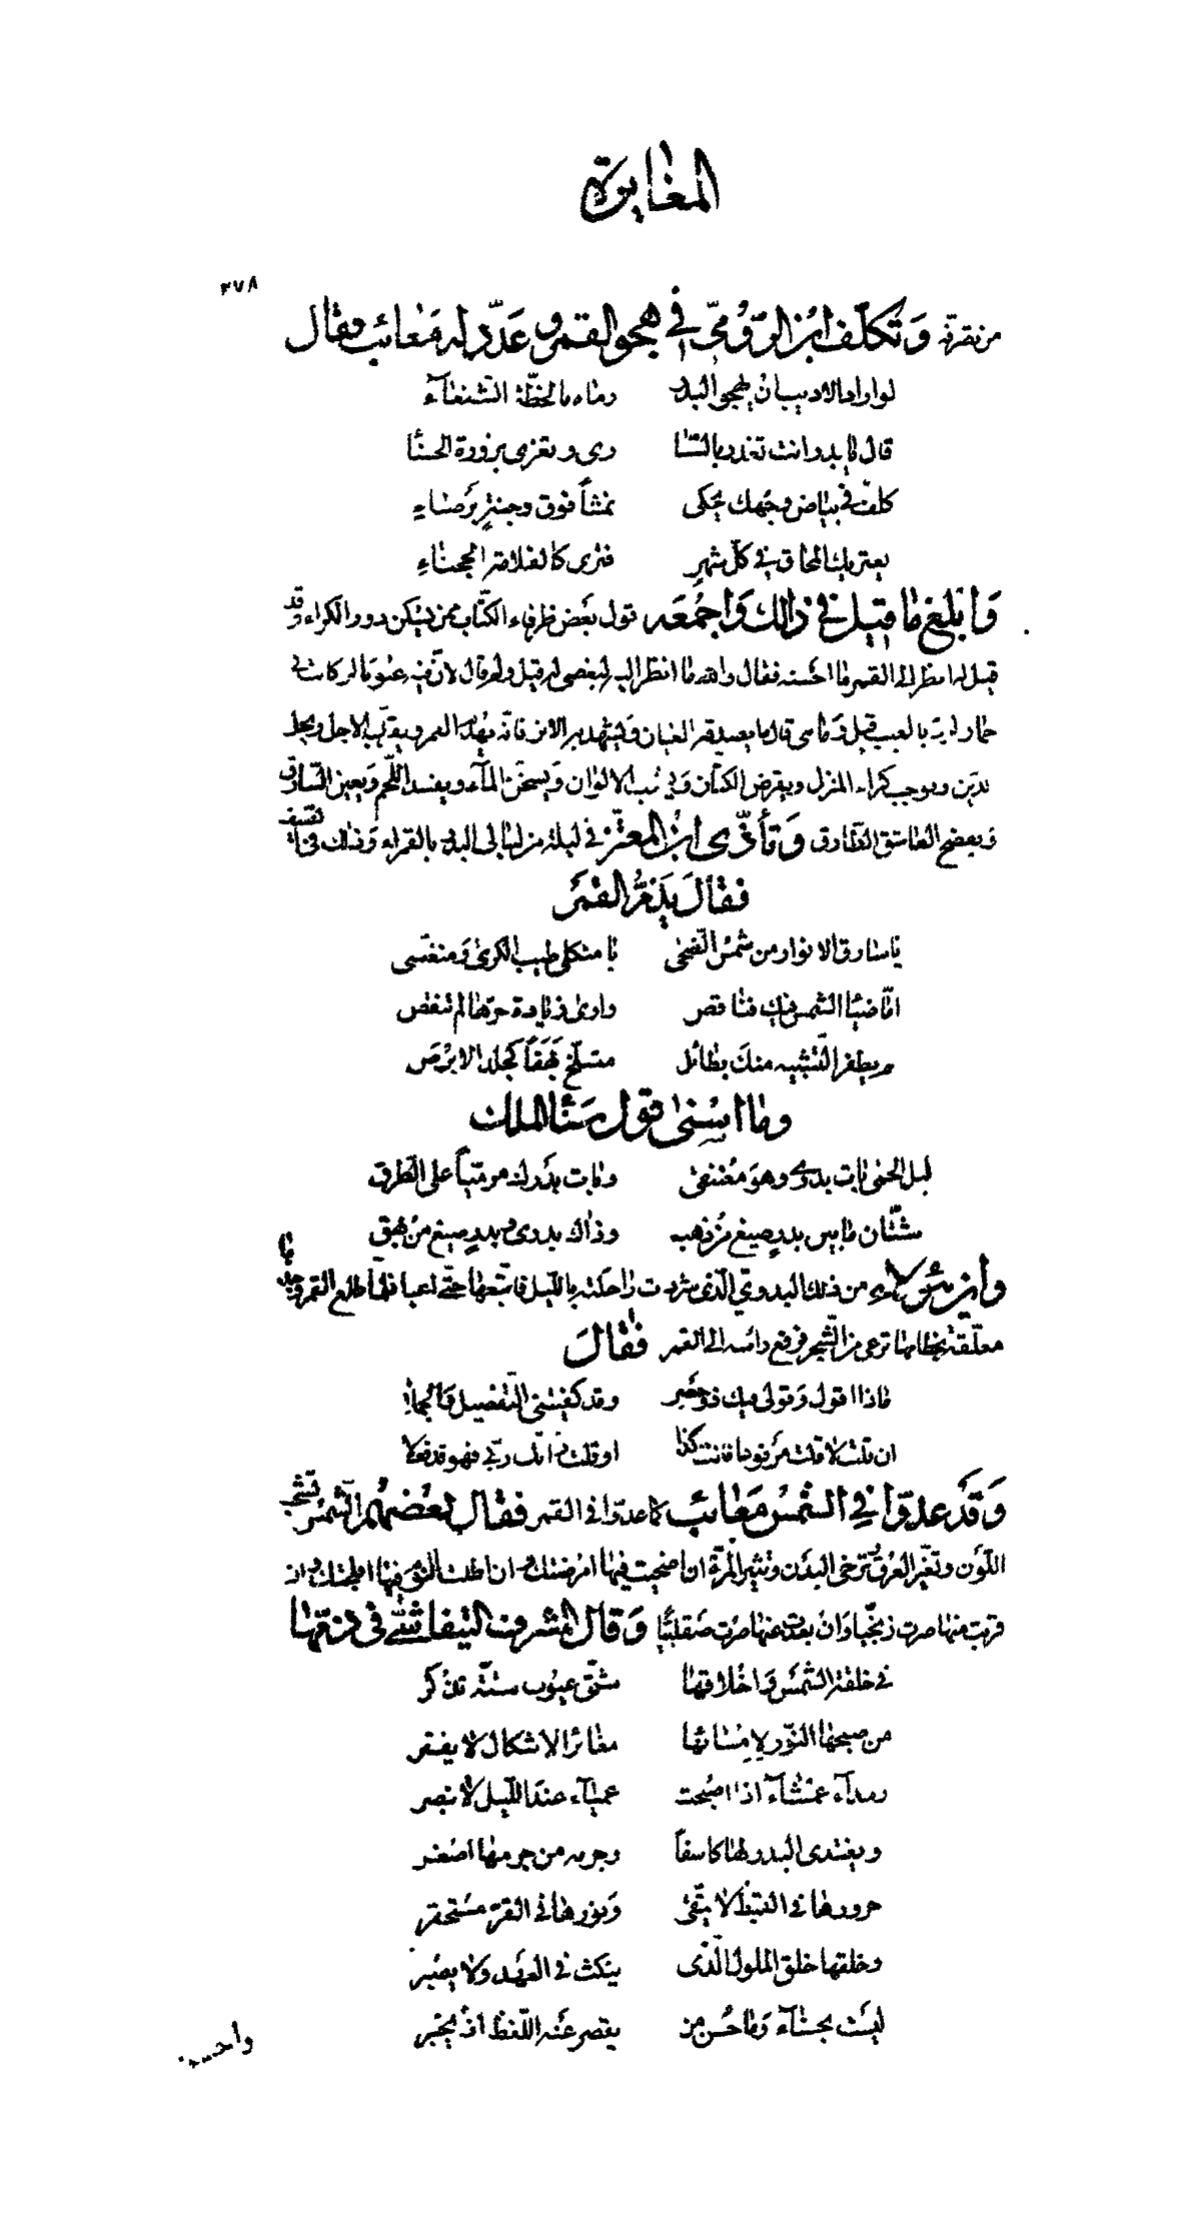 المغايرة
٣٧٨
من نقرته وَتكلّف ابن الرّوميّ في هجو القمر وعَدّد له مَعائب فقال
لو اراد الاديب ان يهجو البدر رماه بالخطّة الشنعآء
قال يا بدر انت تغدر بالسّا رى وتغرى بزورة الحسنا
كلف في بياض وجهك يحكى نمشاً فوق وجنةٍ برصَاءِ
يعتريك المحاق في كلّ شهرٍ فترى كالقلامة الحجناءِ
وَابلغ ما قيل في ذالك وَاجمُعَه قول بعَض ظرفاء الكتّاب ممن يسكن دور الكراء وقد
قيل له انظر الى القمر ما احسَنه فقال والله ما انظر اليه لبغضى له قيل ولم قال لانّ فيه عيُوبا لو كانت في
حمار لردّ بالعيب قيل وَما هى قال ما يصدقه العيان وَيشهد به الاثر فانّه يهُدم العمر ويقرّب الاجل ويحل
الدين ويوجب كراء المنزل ويقرض الكتّان وَيشحب الالوان وَيسخّن المآء ويفسد اللّحم وَيعين السّارق
وَيفضح العاشق الطّارق وَتأذّى ابنُ المعتزّ في ليلة من ليَالى البدر بالقمراء وَذلك في الصّيف
فقَالَ يَذمُّ القَمَر
يا سَارق الانوار من شمسُ الضّحَى يا مثكلى طيب الكرىٰ وَمنغصى
امّا ضيَاء الشمس فيك فنَاقص وارى زيادة حرّها لم تنقص
لم يظفر التّشبيه منكَ بطائل متسلّخ بَهَقاً كجلد الابرَص
وما اسنىٰ قول سَنَا الملك
ليل الحمى بات بدرى وهوَ مُعْتنقى وبَات بدَرك مرميّاً على الطّرق
شتّان ما بين بدرٍ صيغ من ذهب وذاك بدرى وبدرٍ صيغ من بهق
واين هؤلاء من ذلك البدويّ الّذى شردت رَاحلته بالليل فاتبعهَا حتّى اعيا فلمّا طلع القمر وجدها
معلّقة بخطامها ترعى من الشّجر فرفع رأسه الى القمر فقَالَ
ماذا اقول وَقولى فيك ذو حَصَر وقد كفيتنى التّفصيل وَالجملَا
ان قلت لا زلت مرَفوعا فانت كذا او قلت زانك ربّى فهو قد فعلا
وَقَد عدّوا فِي الشمسُ مَعَائب كما عدّوا فى القمر فقَال بعُضهُم الشّمسُ تشحب
اللّون وتغيّر العرَق وَترخى البدَن وتثير المرّة ان اضحيت فيها امرضتك وان اطلت النوم فيهَا افلجتك وان
قربت منها صرت زنجيّا وَانْ بعدت عنها صرت صَقلبيًّا وَقَال المشرف التيفاشيّ فى ذمّهَا
في خلقة الشّمسَ وَاخلاقهَا شتّى عيُوب ستّة تذكر
رمدآء عمشآء اذا اصبَحت عميَآء عندَ اللّيل لا تبصر
ويغتدى البدر لهَا كاسفاً وجرمه من جرمهَا اصغر
حرورهَا فى القيظ لا يتّقىٰ وَنورهَا فى القرّ مسَتحقر
وخلقها خلق الملول الّذى ينكث فى العهَد ولا يصْبر
ليسَت بحسنآء وَمَا حُسن من يقصر عَنه اللّفظ اذ يخبر